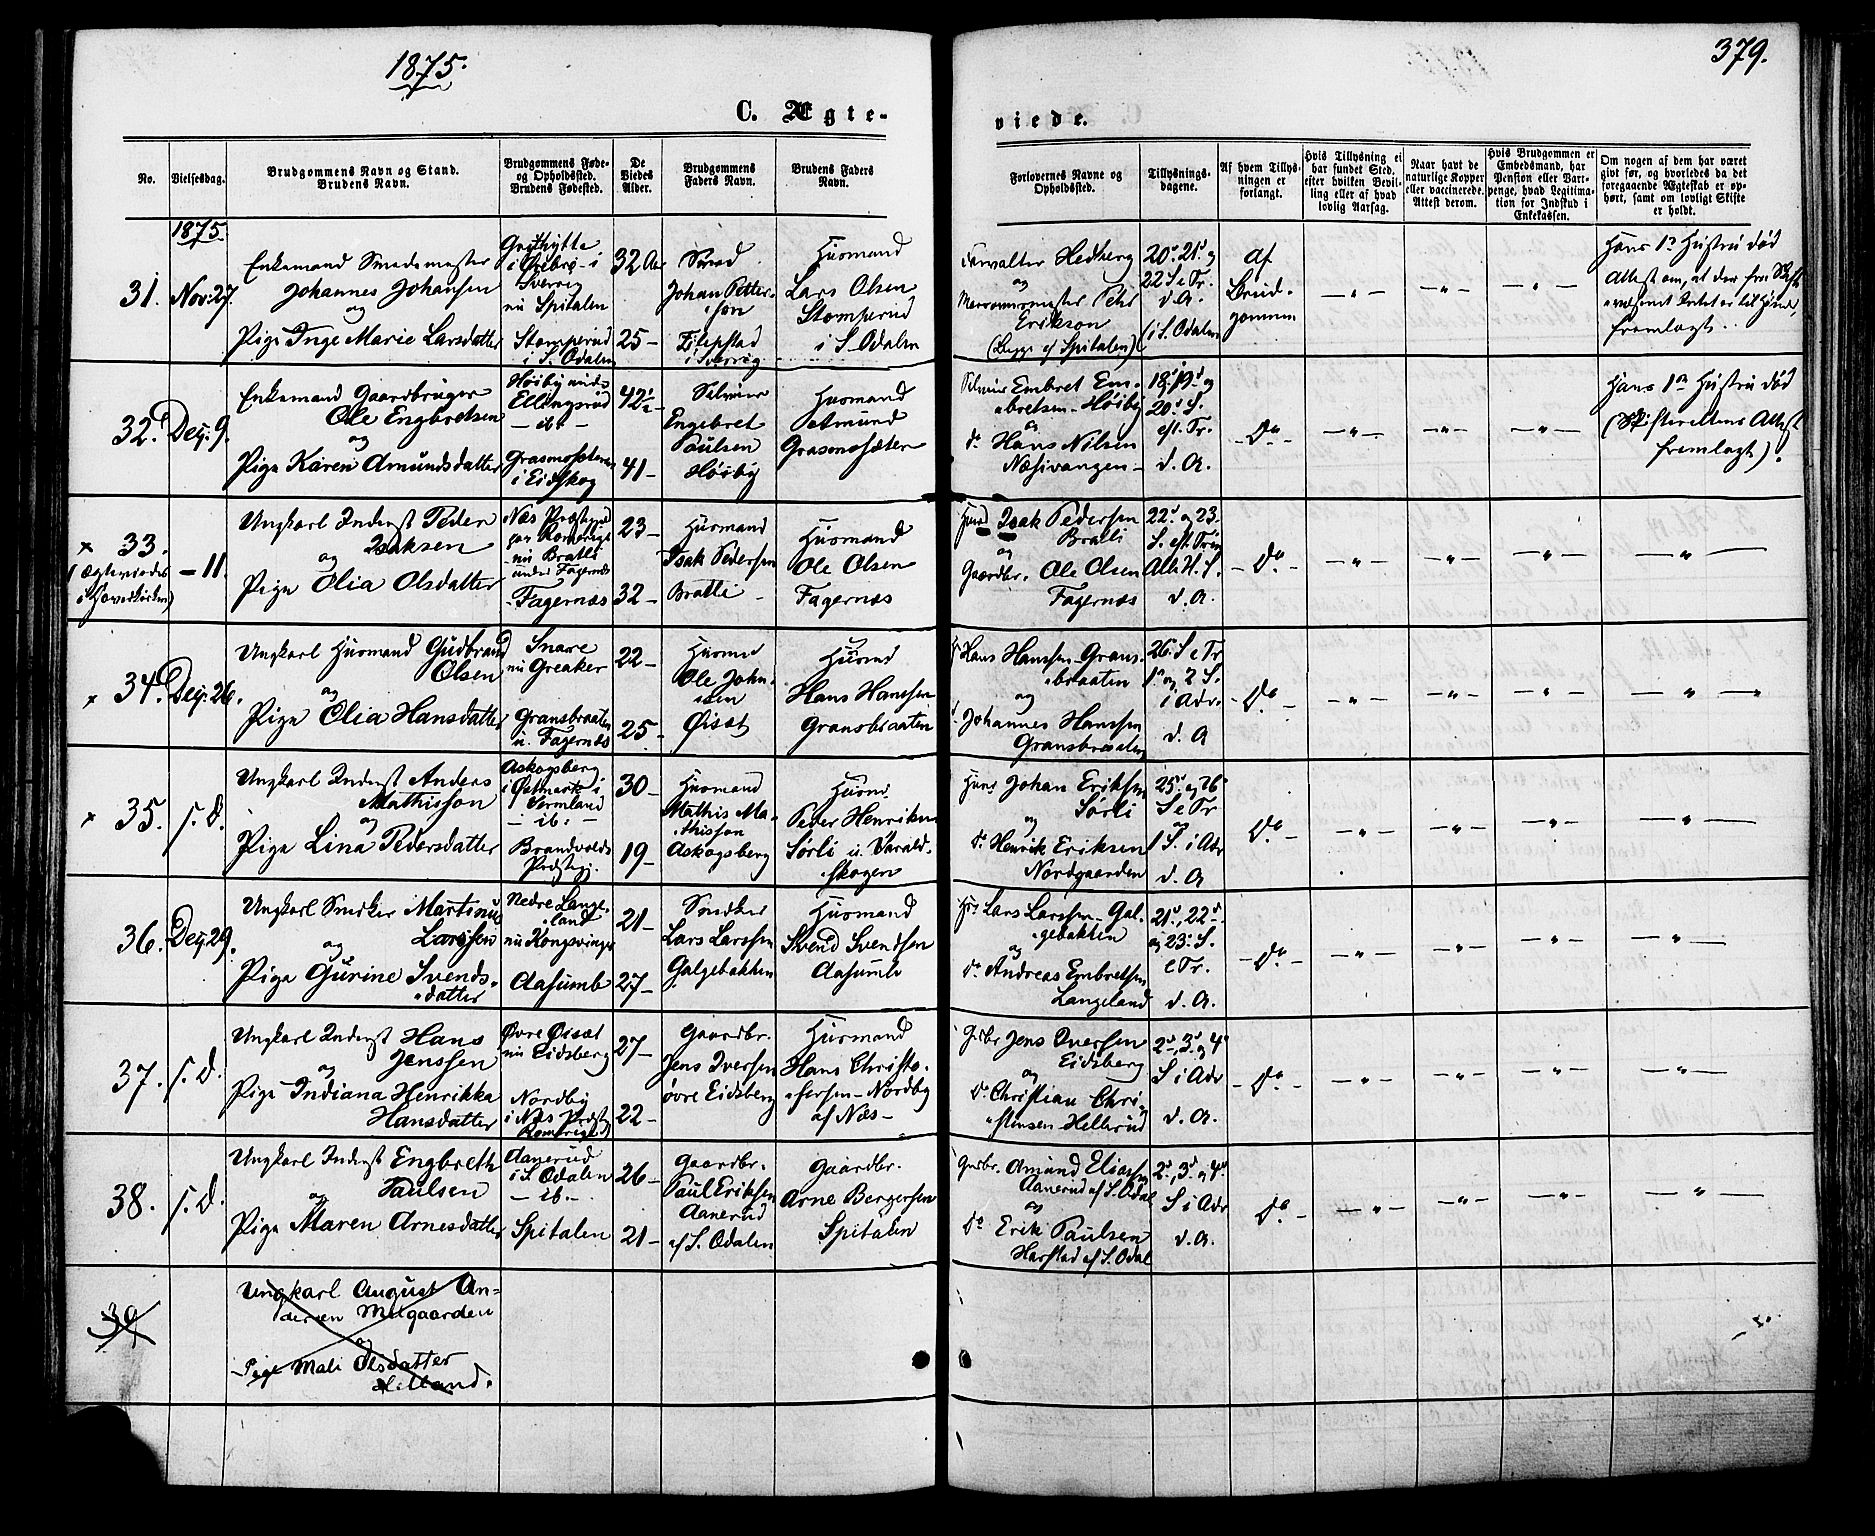 1875.
379.
C. Ægte-
viede.
No.
Vielsesdag.
Brudgommens Navn og Stand.
Brudens Navn.
Brudgommens Føde-
og Opholdssted.
Brudens Fødested.
De
Viedes
Alder.
Brudgommens
Faders Navn.
Brudens Faders
Navn.
Forlovernes Navne og
Opholdssted.
Tillysnings-
dagene.
Af hvem Tillys-
ningen er
forlangt.
Hvis Tillysning ei
har fundet Sted,
efter hvilken Bevil-
ling eller af hvad
lovlig Aarsag.
Naar havt de
naturlige Kopper
eller vaccinerede.
Attest derom.
Hvis Brudgommen er
Embedsmand, har
Pension eller Var-
penge, hvad Legitima-
tion for Indskud i
Enkekassen.
Om nogen af dem har været
givt før, og hvorledes da det
foregaaende Ægteskab er op-
hørt, samt om lovligt Skifte
er holdt.
1875.
31.
Nov: 27.
Enkemand Smedemester
Johannes Johansen
og
Pige Inge Marie Larsdatter
Grythytte
i Ørebro - i
Sverrig
nu Spitalen
Stomperud
i S. Odalen
32 Aar
25 -
Smed
Johan Petter-
søn
Filipstad
i Sverrig
Husmand
Lars Olsen
Stomperud
i S. Odalen
Forvalter Hedberg
og
Erikson
(Begge af Spitalen)
20d 21d og
22 S e Tr.
d. A.
(i S. Odalen
Af
Brud-
gommen
- " -
- " -
- " -
Hans 1ste Hustru død
Attest om, at der fra Skifte-
fremlagt.
32.
Dez: 9.
Enkemand Gaardbruger
Ole Engbretsen
og
Pige Karen Amundsdatter
Høiby under
Ellingsrud
- ib. -
i Eidskog
42½
41 -
Selveier
Engebret
Paulsen
Høiby
Husmand
Amund
Grasmosæter
Selveier Embret Em-
bretsen - Høiby
og
do Hans Nilsen
Næsivangen -
18d, 19d og
20d S.
eft. Tr.
d. A.
- Do -
- " -
- " -
- " -
Hans 1ste Hustru død
(Skifterettens Attest
fremlagt).
x 33.
(Ægteviede
i Hovedkirken)
- 11.
Ungkarl Inderst Peder
Isaksen
og
Pige Olia Olsdatter
Næs Præstegjeld
nu Bratli
under Fagernæs
- Fagernæs
23 -
32 -
Husmand
Isak Pedersen
Bratli -
Husmand
Ole Olsen
Fagernæs
Husmd Isak Pedersen
Bratli
og
Gaardbr. Ole Olsen
Fagernæs
22d og 23.
S. eft. Trin
Alle H. S.
d. A.
- Do -
- " -
- " -
- " -
- " -
x 34.
Dez: 26.
Ungkarl Husmand Gudbrand
Olsen
og
Pige Olia Hansdatter
Snare
nu Greaker
Gransbraaten
u. Fagernæs
22 -
25 -
Husmd
Ole John-
sen
Øisæt
Husmd
Hans Hanssen
Gransbraaten
Hans Hanssen - Grans-
braaten
og
Johannes Hanssen
Gransbraaten
26: S e Tr
1ste og 2 S.
i Adv.
d. A
- Do -
- " -
- " -
- " -
- " -
x 35.
s. D.
Ungkarl Inderst Anders
Mathisson
og
Pige Lina Pedersdatter
Askogsberg
i Østmark i
Vermland
- ib. -
Brandvolds
Præstegj.
30 -
19 -
Husmand
Mathis Ma-
thisson
Askogsberg
Husmd
Peder Henriksen
Sørli u. Varald-
skogen
Husmd Johan Eriksen
Sørli
og
do Henrik Eriksen
Nordgaarden
25d og 26d
S e Tr
og
1 S. i Adv
d. A
Do -
- " -
- " -
- " -
- " -
36.
Dez: 29.
Ungkarl Snedker Martinus
Larssen
og
Pige Gurine Svends-
datter
Nedre Lange-
land
nu Kongsvinger
Aasumb
21 -
27 -
Snedker
Lars Larssen
Galgebakken
Husmand
Svend Svendsen
Aasumb
Lars Larssen - Gal-
gebakken
og
do Andreas Embretsen
Langeland
21d, 22d
og 23: S.
e Tr.
d. A.
- Do -
- " -
- " -
- " -
- " -
37.
s. D.
Ungkarl Inderst Hans
Jenssen
og
Pige Indiana Henrikka
Hansdatter
Øvre Øisæt
nu Eidsberg
Nordby
i Næs Præstegj
Romerige
27 -
22 -
Gaardbr.
Jens Iversen
øvre Eidsberg
Husmand
Hans Christo-
fersen - Nordby
af Næs -
Gdbr Jens Iversen
Eidsberg
og
do Christian Chri-
stensen - Hellerud
2d, 3d og 4d
S i Adv
d. A.
- Do -
- " -
- " -
- " -
- " -
38.
s. D.
Ungkarl Inderst Engbreth
Paulsen
og
Pige Maren Arnesdatter
Aanerud
i S. Odalen
- ib. -
Spitalen
26 -
21 -
Gaardbr.
Paul Eriksen
Aanerud
af S. Odalen
Gaardbr.
Arne Bergersen
Spitalen
Gdbr. Amund Eliassen
Aanerud af S. Odal
og
do Erik Paulsen
Harstad af S. Odal
2d, 3d og 4d
S i Adv
d. A.
Do -
- " -
- " -
- " -
- " -
39
Ungkarl August An-
dersen Melgaarden
og
Pige Mali Olsdatter